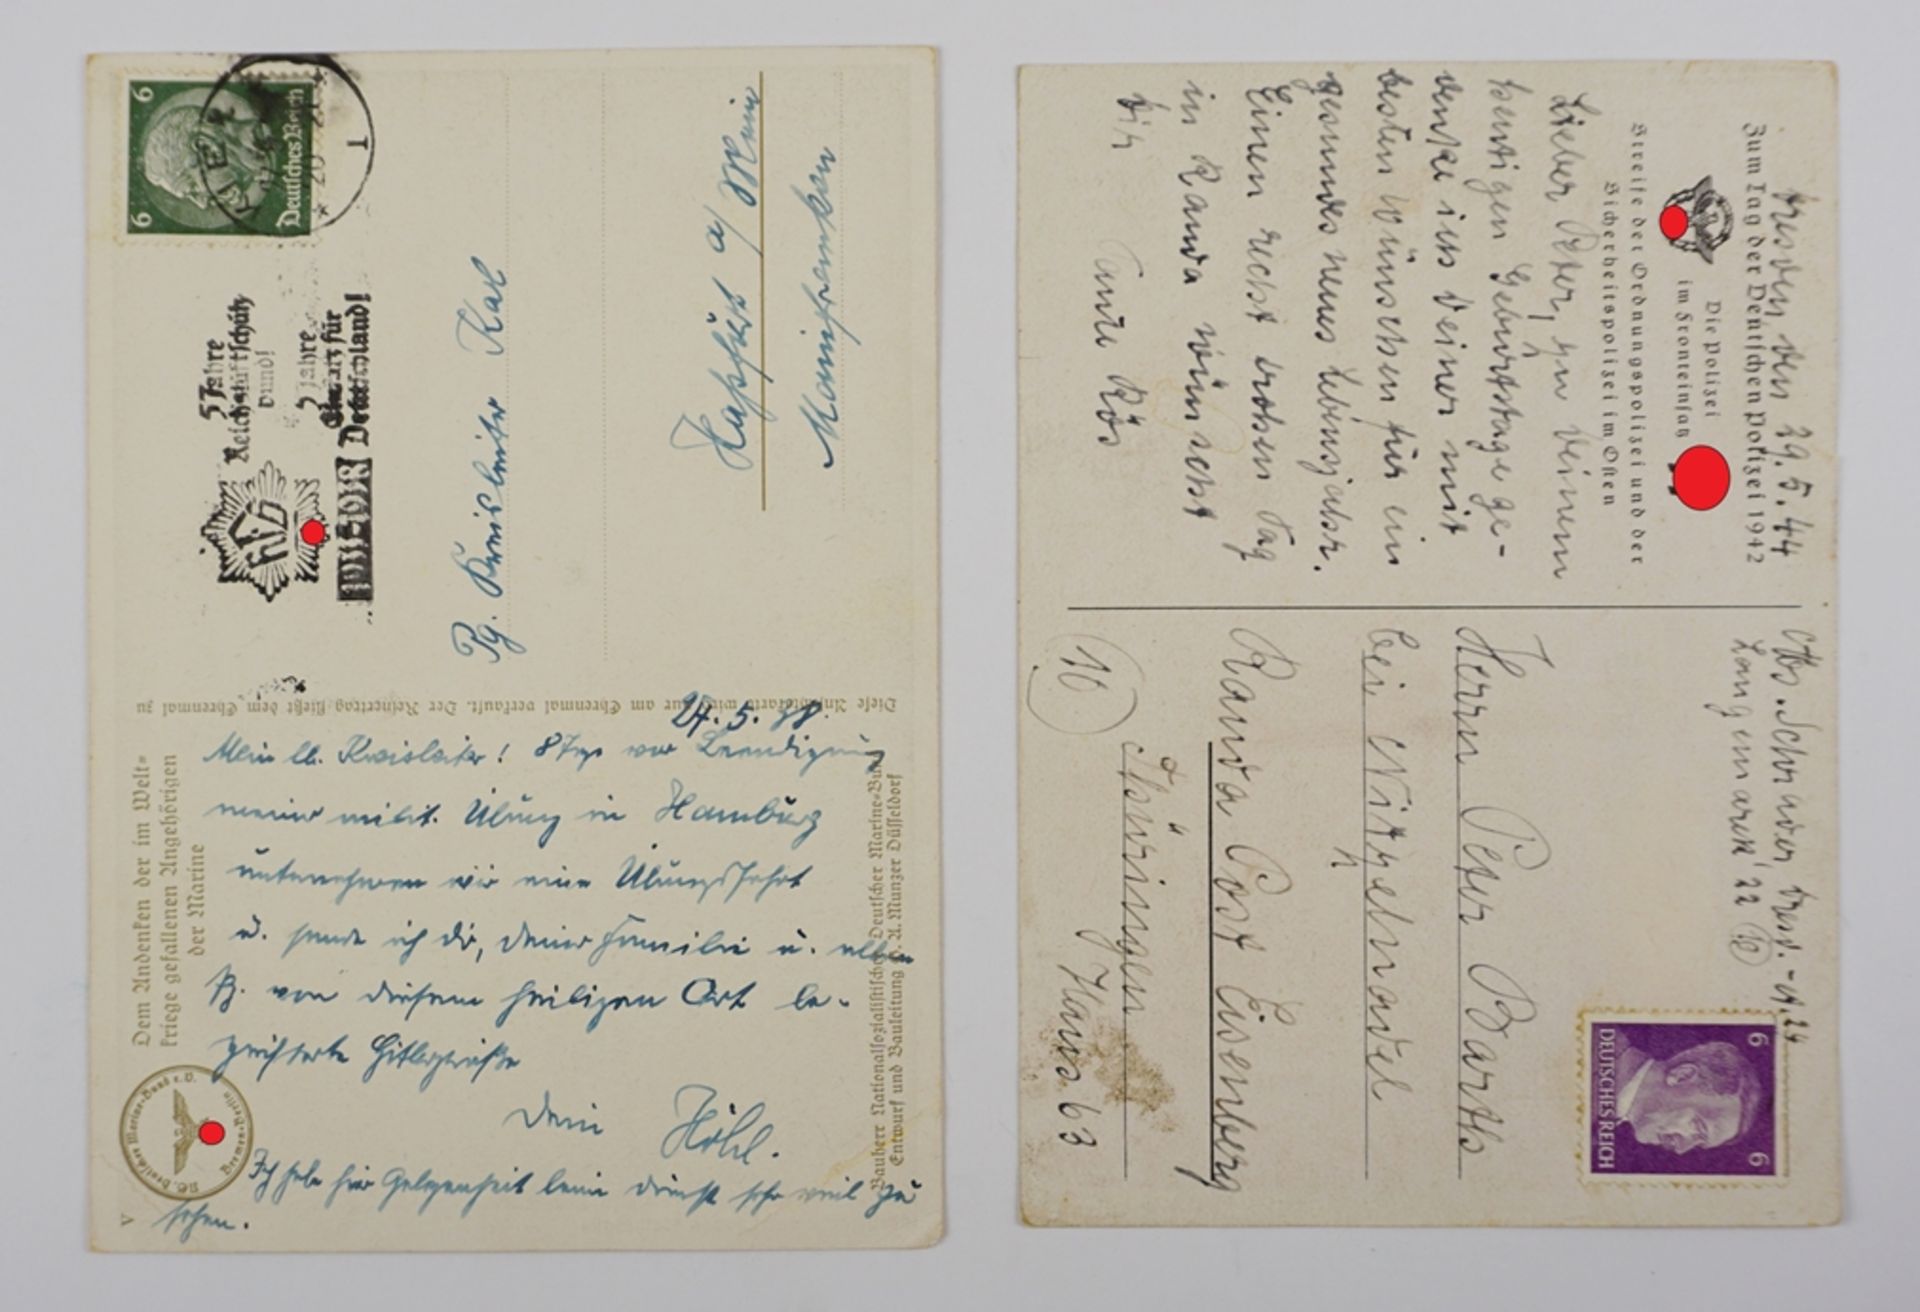 6
6
Deutsches Reich
KIEL
5 Jahre
Reichsluftschutz
bund!
5 Jahre
Einsatz für
Deutschland!
Pg. Kreisleiter Kal
Haßfurt a/ Main
Mainfranken
Diese Ansichtskarte wird nur am Ehrenmal verkauft. Der Reinertrag fließt dem Ehrenmal zu
Dem Andenken der im Welt-
kriege gefallenen Angehörigen
der Marine
NS. Deutscher Marine-Bund e.V.
24. 5. 38.
Mein lb. Kreisleiter! 8 Tage vor Beendigung
meiner milit. Übung in Hamburg
unternehmen wir eine Übungsfahrt
u. sende ich dir, deiner Familie u. allen
P. von diesem heiligen Ort be-
geisterte Hitlergrüße
Dein Höhl.
Ich habe hier Gelegenheit beim Dienst sehr viel zu
sehen.
Bauherr Nationalsozialistischer Deutscher Marine-Bund
Entwurf und Bauleitung G. A. Munzer Düsseldorf
V
Dresden den 29.5.44
Zum Tag der Deutschen Polizei 1942
Die Polizei
im Fronteinsatz
Streife der Ordnungspolizei und der
Sicherheitspolizei im Osten
Lieber Peter, zu Deinem
heutigen Geburtstage ge-
denke ich Deiner mit
besten Wünschen für ein
gesundes neues Lebensjahr.
Einen recht frohen Tag
in Rauda wünscht
Dir
Tante Rös
Abs. Schrader Dresd.-A.24
Langemarck 22
6
6
DEUTSCHES REICH
Herrn Peter Barth
bei Nitzschnadel
Rauda Post Eisenberg
Thüringen
Haus 63
10